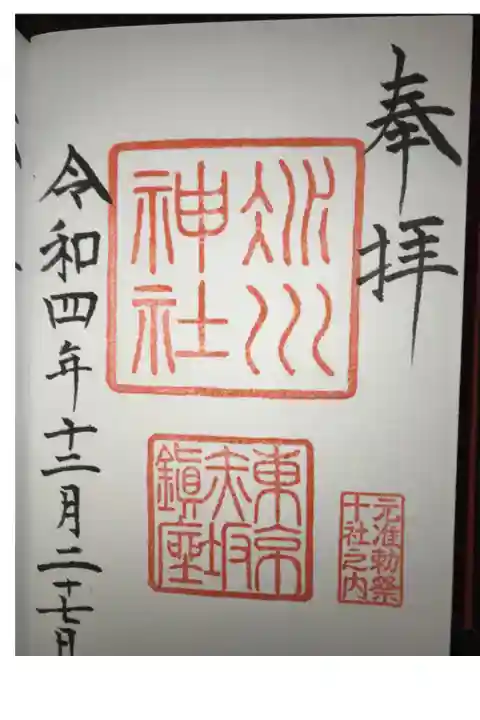 奉拝
氷川
神社
東京
赤坂
鎮座
元准勅祭
十社之内
令和四年十二月二十七日